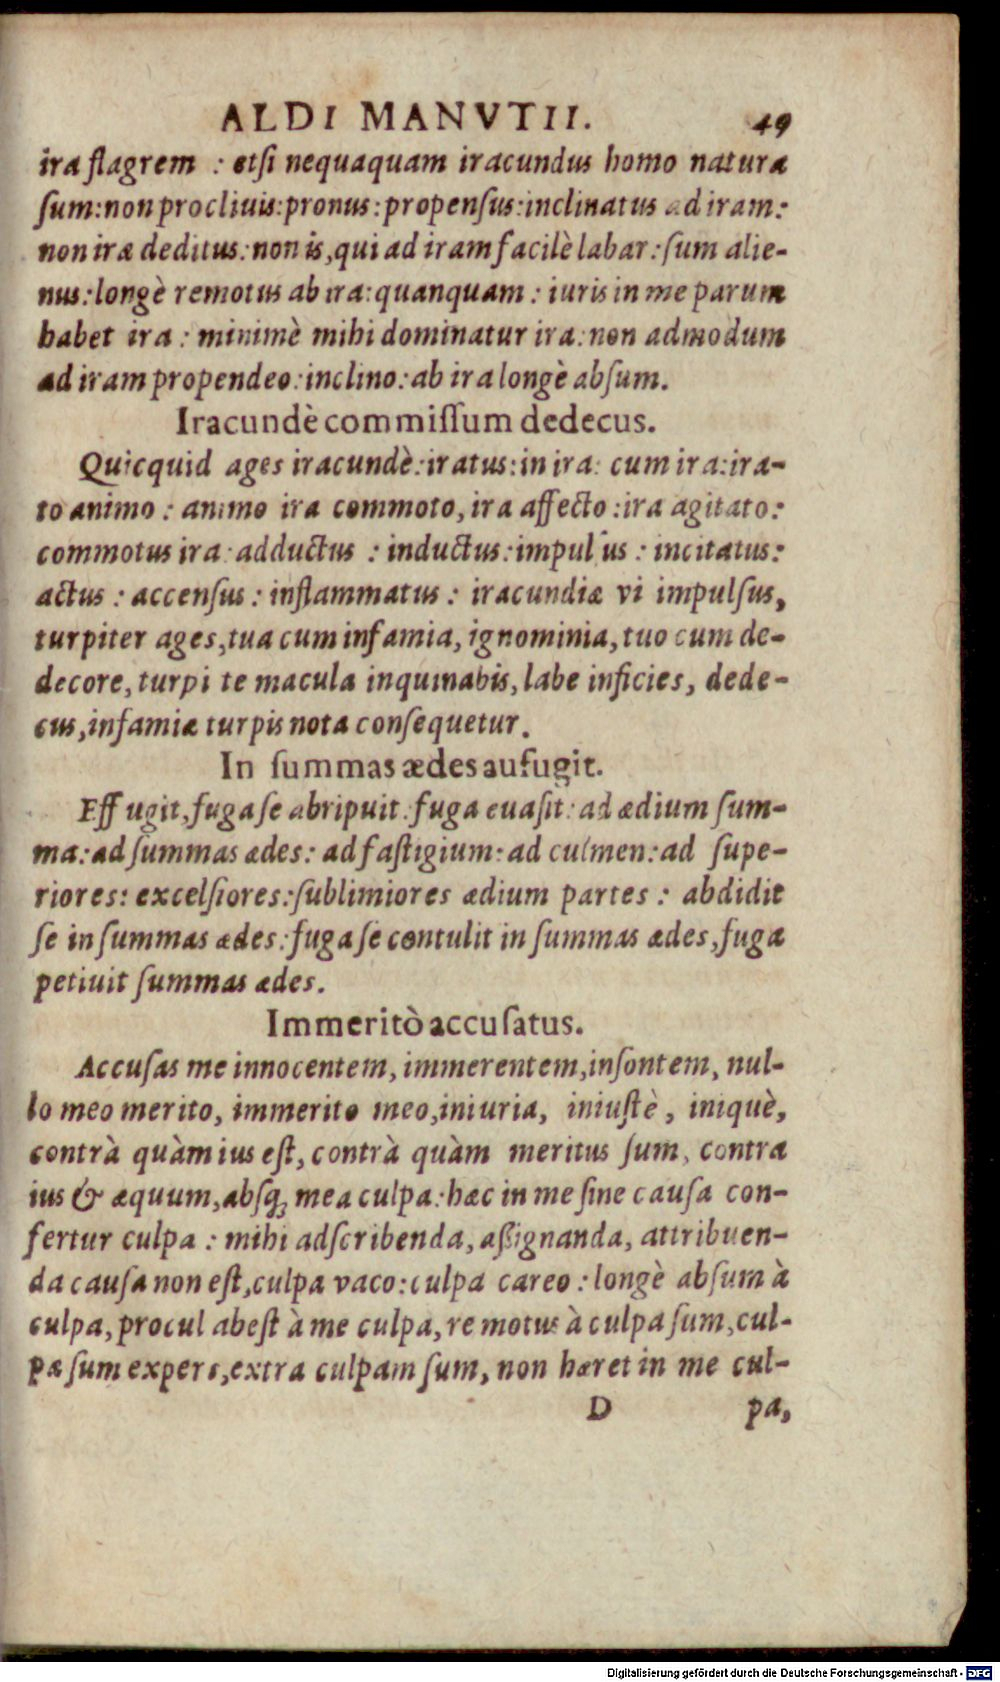 ALDI MANVTII. 49
ira flagrem : etsi nequaquam iracundus homo natura
ſum: non procliuis: pronus: propenſus: inclinatus ad iram:
non iræ deditus: non is, qui ad iram facilè labar: ſum alie-
nus: longè remotus ab ira: quanquam: iuris in me parum
habet ira: minimè mihi dominatur ira: non admodum
ad iram propendeo: inclino: ab ira longè abſum.
Iracundè commiſſum dedecus.
Quicquid ages iracundè: iratus: in ira: cum ira: ira-
to animo: animo ira commoto, ira affecto: ira agitato:
commotus ira: adductus: inductus: impulſus: incitatus:
actus: accenſus: inflammatus: iracundiæ vi impulſus,
turpiter ages, tua cum infamia, ignominia, tuo cum de-
decore, turpi te macula inquinabis, labe inficies, dede-
cus, infamiæ turpis nota conſequetur.
In ſummas ædes aufugit.
Effugit, fuga ſe abripuit: fuga euaſit: ad ædium ſum-
ma: ad ſummas ædes: ad faſtigium: ad culmen: ad ſupe-
riores: excelſiores: ſublimiores ædium partes: abdidit
ſe in ſummas ædes: fuga ſe contulit in ſummas ædes, fuga
petiuit ſummas ædes.
Immeritò accuſatus.
Accuſas me innocentem, immerentem, inſontem, nul-
lo meo merito, immerito meo, iniuria, iniuſtè, iniquè,
contrà quàm ius eſt, contrà quàm meritus ſum, contra
ius & æquum, abſq; mea culpa: hæc in me ſine cauſa con-
fertur culpa: mihi adſcribenda, aßignanda, attribuen-
da cauſa non eſt, culpa vaco: culpa careo: longè abſum à
culpa, procul abeſt à me culpa, remotus à culpa ſum, cul-
pæ ſum expers, extra culpam ſum, non hæret in me cul-
D pa,
Digitalisierung gefördert durch die Deutsche Forschungsgemeinschaft - DFG